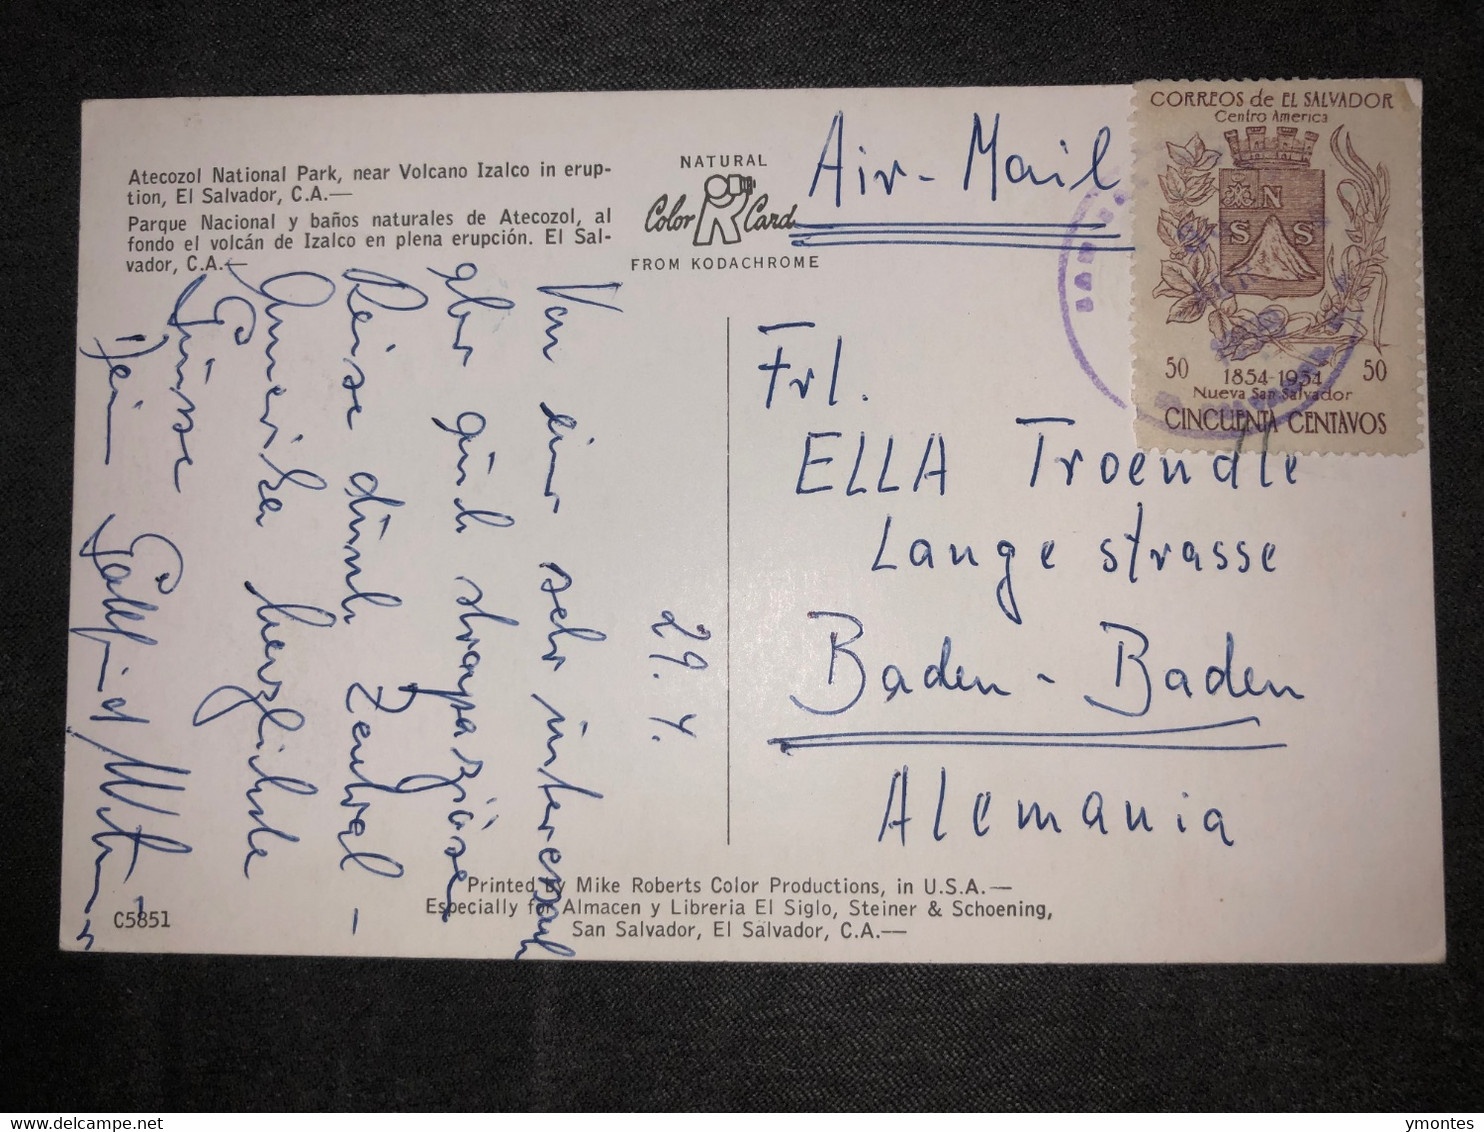 Atecozol National Park, near Volcano Izalco in erup-
tion, El Salvador, C.A.—
Parque Nacional y baños naturales de Atecozol, al
fondo el volcán de Izalco en plena erupción. El Sal-
vador, C.A.—
NATURAL
Color R Card
FROM KODACHROME
Air-Mail
CORREOS de EL SALVADOR
Centro America
N
S S
50 1854-1954 50
Nueva San Salvador
CINCUENTA CENTAVOS
29. 4.
Von einer sehr interessanten
aber auch strapaziösen
Reise durch Zentral-
Amerika herzliche
Grüsse
Dein
Frl.
ELLA Troendle
Lange strasse
Baden-Baden
Alemania
Printed by Mike Roberts Color Productions, in U.S.A.—
Especially for Almacen y Libreria El Siglo, Steiner & Schoening,
San Salvador, El Salvador, C.A.—
C5851
ymontes